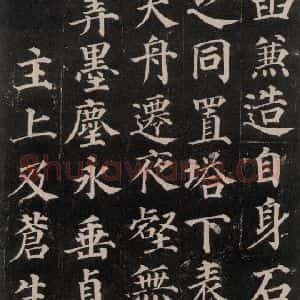 函兼造自身石
之同置塔下表
夫舟遷夜壑無
筭墨塵永垂貞
主上及蒼生